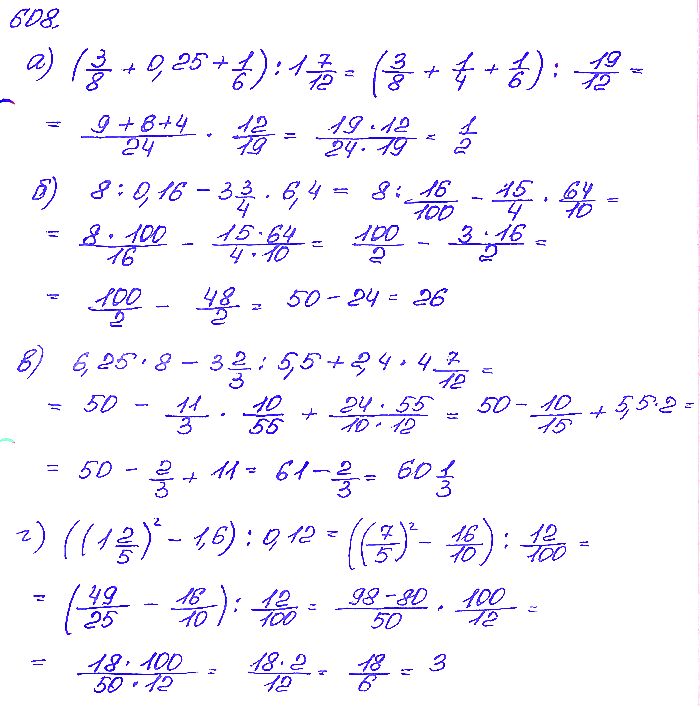 608.
а) (3/8 + 0,25 + 1/6) : 1 7/12 = (3/8 + 1/4 + 1/6) : 19/12 =
= (9+6+4)/24 · 12/19 = (19·12)/(24·19) = 1/2
б) 8 : 0,16 − 3 3/4 · 6,4 = 8 : 16/100 − 15/4 · 64/10 =
= (8·100)/16 − (15·64)/(4·10) = 100/2 − (3·16)/2 =
= 100/2 − 48/2 = 50 − 24 = 26
в) 6,25 · 8 − 3 2/3 : 5,5 + 2,4 · 4 7/12 =
= 50 − 11/3 · 10/55 + (24·55)/(10·12) = 50 − 10/15 + 5,5·2 =
= 50 − 2/3 + 11 = 61 − 2/3 = 60 1/3
г) ((1 2/5)² − 1,6) : 0,12 = ((7/5)² − 16/10) : 12/100 =
= (49/25 − 16/10) : 12/100 = (98−80)/50 · 100/12 =
= (18·100)/(50·12) = (18·2)/12 = 18/6 = 3